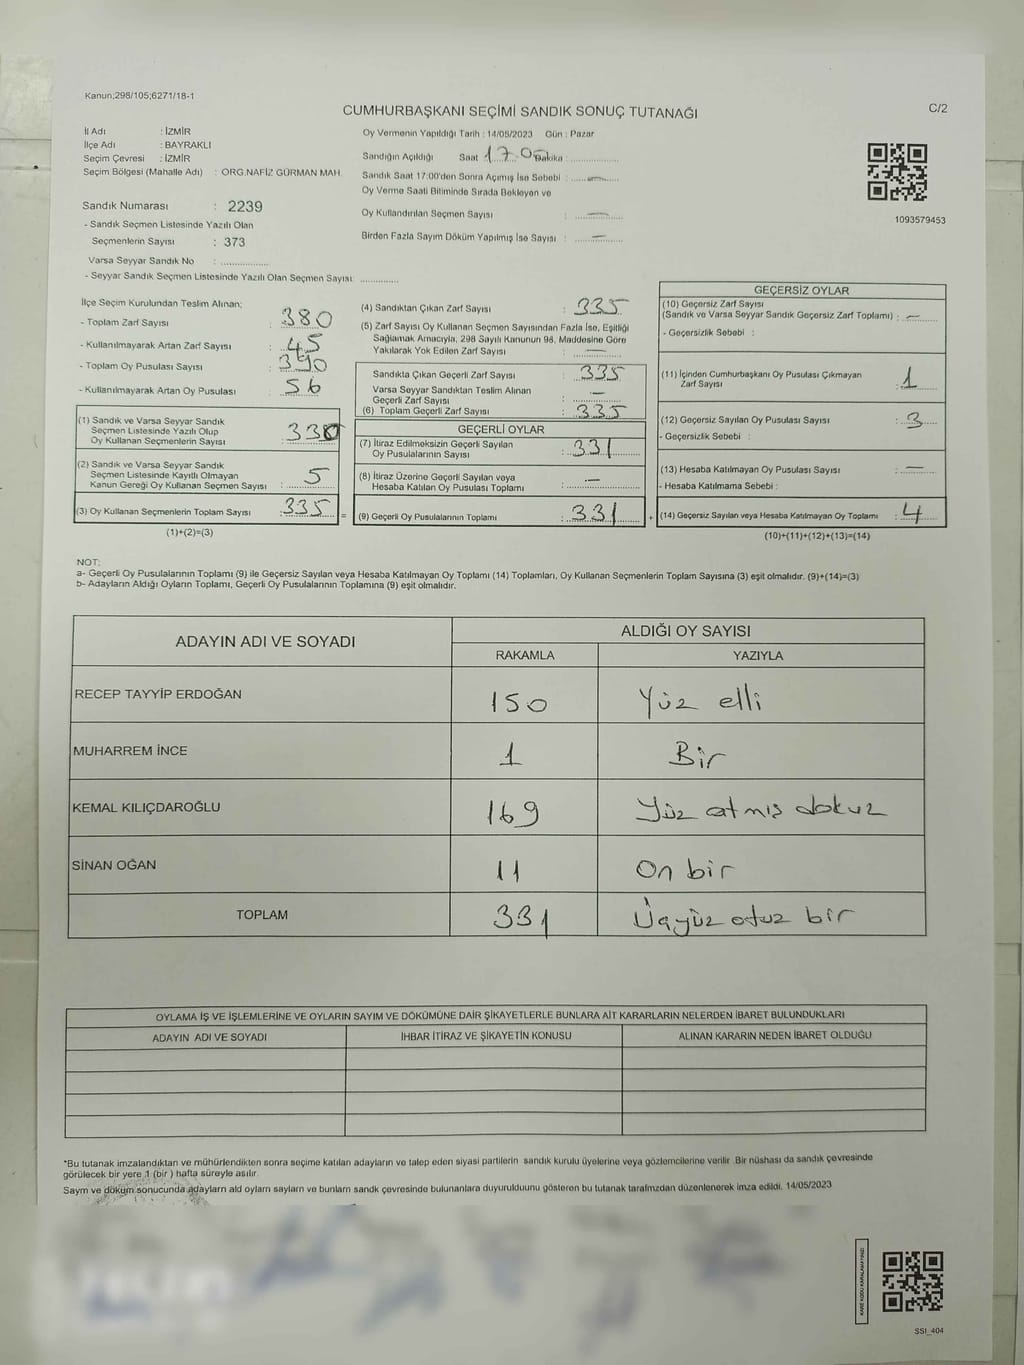 Kanun;298/105;6271/18-1
CUMHURBAŞKANI SEÇİMİ SANDIK SONUÇ TUTANAĞI
C/2
İl Adı : İZMİR
İlçe Adı : BAYRAKLI
Seçim Çevresi : İZMİR
Seçim Bölgesi (Mahalle Adı) : ORG.NAFİZ GÜRMAN MAH.
Sandık Numarası : 2239
- Sandık Seçmen Listesinde Yazılı Olan
Seçmenlerin Sayısı : 373
Varsa Seyyar Sandık No : ..............
- Seyyar Sandık Seçmen Listesinde Yazılı Olan Seçmen Sayısı: ............
Oy Vermenin Yapıldığı Tarih : 14/05/2023 Gün : Pazar
Sandığın Açıldığı Saat 17.00 Dakika : ..............
Sandık Saat 17:00'den Sonra Açımış İse Sebebi : —
Oy Verme Saati Bitiminde Sırada Bekleyen ve
Oy Kullandırılan Seçmen Sayısı : —
Birden Fazla Sayım Döküm Yapılmış İse Sayısı : —
1093579453
İlçe Seçim Kurulundan Teslim Alınan;
- Toplam Zarf Sayısı : 380
- Kullanılmayarak Artan Zarf Sayısı : 45
- Toplam Oy Pusulası Sayısı : 390
- Kullanılmayarak Artan Oy Pusulası : 56
(1) Sandık ve Varsa Seyyar Sandık
Seçmen Listesinde Yazılı Olup
Oy Kullanan Seçmenlerin Sayısı : 330
(2) Sandık ve Varsa Seyyar Sandık
Seçmen Listesinde Kayıtlı Olmayan
Kanun Gereği Oy Kullanan Seçmen Sayısı : 5
(3) Oy Kullanan Seçmenlerin Toplam Sayısı : 335 =
(1)+(2)=(3)
(4) Sandıktan Çıkan Zarf Sayısı : 335
(5) Zarf Sayısı Oy Kullanan Seçmen Sayısından Fazla İse, Eşitliği
Sağlamak Amacıyla; 298 Sayılı Kanunun 98. Maddesine Göre
Yakılarak Yok Edilen Zarf Sayısı : —
Sandıkta Çıkan Geçerli Zarf Sayısı : 335
Varsa Seyyar Sandıktan Teslim Alınan
Geçerli Zarf Sayısı : —
(6) Toplam Geçerli Zarf Sayısı : 335
GEÇERLİ OYLAR
(7) İtiraz Edilmeksizin Geçerli Sayılan
Oy Pusulalarının Sayısı : 331
(8) İtiraz Üzerine Geçerli Sayılan veya
Hesaba Katılan Oy Pusulası Toplamı : —
(9) Geçerli Oy Pusulalarının Toplamı : 331 +
GEÇERSİZ OYLAR
(10) Geçersiz Zarf Sayısı
(Sandık ve Varsa Seyyar Sandık Geçersiz Zarf Toplamı) : —
- Geçersizlik Sebebi :
(11) İçinden Cumhurbaşkanı Oy Pusulası Çıkmayan
Zarf Sayısı : 1
(12) Geçersiz Sayılan Oy Pusulası Sayısı : 3
- Geçersizlik Sebebi :
(13) Hesaba Katılmayan Oy Pusulası Sayısı : —
- Hesaba Katılmama Sebebi :
(14) Geçersiz Sayılan veya Hesaba Katılmayan Oy Toplamı : 4
(10)+(11)+(12)+(13)=(14)
NOT:
a- Geçerli Oy Pusulalarının Toplamı (9) ile Geçersiz Sayılan veya Hesaba Katılmayan Oy Toplamı (14) Toplamları, Oy Kullanan Seçmenlerin Toplam Sayısına (3) eşit olmalıdır. (9)+(14)=(3)
b- Adayların Aldığı Oyların Toplamı, Geçerli Oy Pusulalarının Toplamına (9) eşit olmalıdır.
ADAYIN ADI VE SOYADI
ALDIĞI OY SAYISI
RAKAMLA YAZIYLA
RECEP TAYYİP ERDOĞAN 150 Yüz elli
MUHARREM İNCE 1 Bir
KEMAL KILIÇDAROĞLU 169 Yüz atmış dokuz
SİNAN OĞAN 11 On bir
TOPLAM 331 Üçyüz otuz bir
OYLAMA İŞ VE İŞLEMLERİNE VE OYLARIN SAYIM VE DÖKÜMÜNE DAİR ŞİKAYETLERLE BUNLARA AİT KARARLARIN NELERDEN İBARET BULUNDUKLARI
ADAYIN ADI VE SOYADI İHBAR İTİRAZ VE ŞİKAYETİN KONUSU ALINAN KARARIN NEDEN İBARET OLDUĞU
*Bu tutanak imzalandıktan ve mühürlendikten sonra seçime katılan adayların ve talep eden siyasi partilerin sandık kurulu üyelerine veya gözlemcilerine verilir .Bir nüshası da sandık çevresinde
görülecek bir yere 1 (bir ) hafta süreyle asılır.
Sayım ve döküm sonucunda adayların ald oyların sayların ve bunların sandk çevresinde bulunanlara duyurulduunu gösteren bu tutanak tarafmzdan düzenlenerek imza edildi. 14/05/2023
KARE KODU KARALAMAYINIZ!
SSI_404